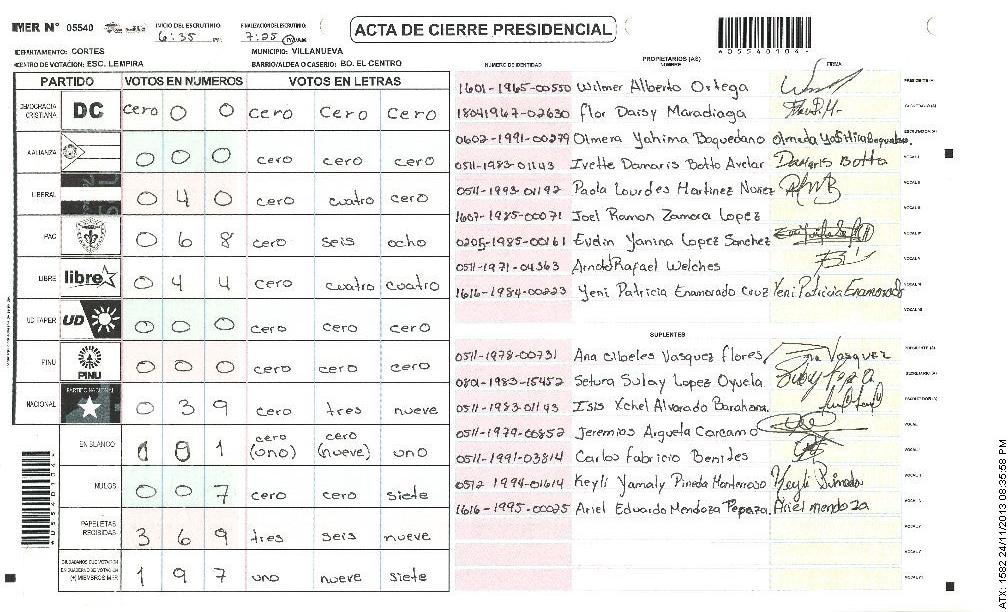 MER N° 05540
INICIO DEL ESCRUTINIO: 6:35 PM
FINALIZACION DEL ESCRUTINIO: 7:25
ACTA DE CIERRE PRESIDENCIAL
A05540104
DEPARTAMENTO: CORTES
MUNICIPIO: VILLANUEVA
CENTRO DE VOTACION: ESC. LEMPIRA
BARRIO/ALDEA O CASERIO: BO. EL CENTRO
PARTIDO VOTOS EN NUMEROS VOTOS EN LETRAS
DEMOCRACIA CRISTIANA DC cero 0 0 cero cero cero
AALIANZA 0 0 0 cero cero cero
LIBERAL 0 4 0 cero cuatro cero
PAC 0 6 8 cero seis ocho
LIBRE libre 0 4 4 cero cuatro cuatro
UD TAPER UD 0 0 0 cero cero cero
PINU PINU 0 0 0 cero cero cero
NACIONAL PARTIDO NACIONAL 0 3 9 cero tres nueve
EN BLANCO 1 cero (uno) cero (nueve) uno
NULOS 0 0 7 cero cero siete
PAPELETAS RECIBIDAS 3 6 9 tres seis nueve
CIUDADANOS QUE VOTARON EN CUADERNO DE VOTACION (+) MIEMBROS MER 1 9 7 uno nueve siete
PROPIETARIOS (AS)
NUMERO DE IDENTIDAD NOMBRE FIRMA
1601-1965-00550 Wilmer Alberto Ortega PRESIDENTE (A)
18041967-02630 Flor Daisy Maradiaga SECRETARIO (A)
0602-1991-00279 Olmera Yahima Baquedano ESCRUTADOR (A)
0511-1983-01143 Ivette Damaris Botto Avelar Damaris Botto VOCAL I
0511-1993-01192 Paola Lourdes Martinez Nuñez
1607-1985-00071 Joel Ramon Zamora Lopez
0205-1985-00161 Evelin Yanina Lopez Sanchez
0511-1971-04363 Arnold Rafael Welches
1616-1984-00223 Yeni Patricia Enamorado Cruz Yeni Patricia Enamorado
SUPLENTES
0511-1978-00731 Ana Cibeles Vasquez Flores PRESIDENTE (A)
0801-1983-15452 Suyay Lopez Oyuela SECRETARIO (A)
0511-1983-01143 Isis Xchel Alvarado Barahona ESCRUTADOR (A)
0511-1979-00852 Jeremias Argueta Carcamo
0511-1991-03814 Carlos Fabricio Benides
0512 1994-01614 Keyli Yamaly Pineda Monterroso
1616-1995-00025 Ariel Eduardo Mendoza Ariel mendoza
ATX: 1582 24/11/2013 08:35:58 PM